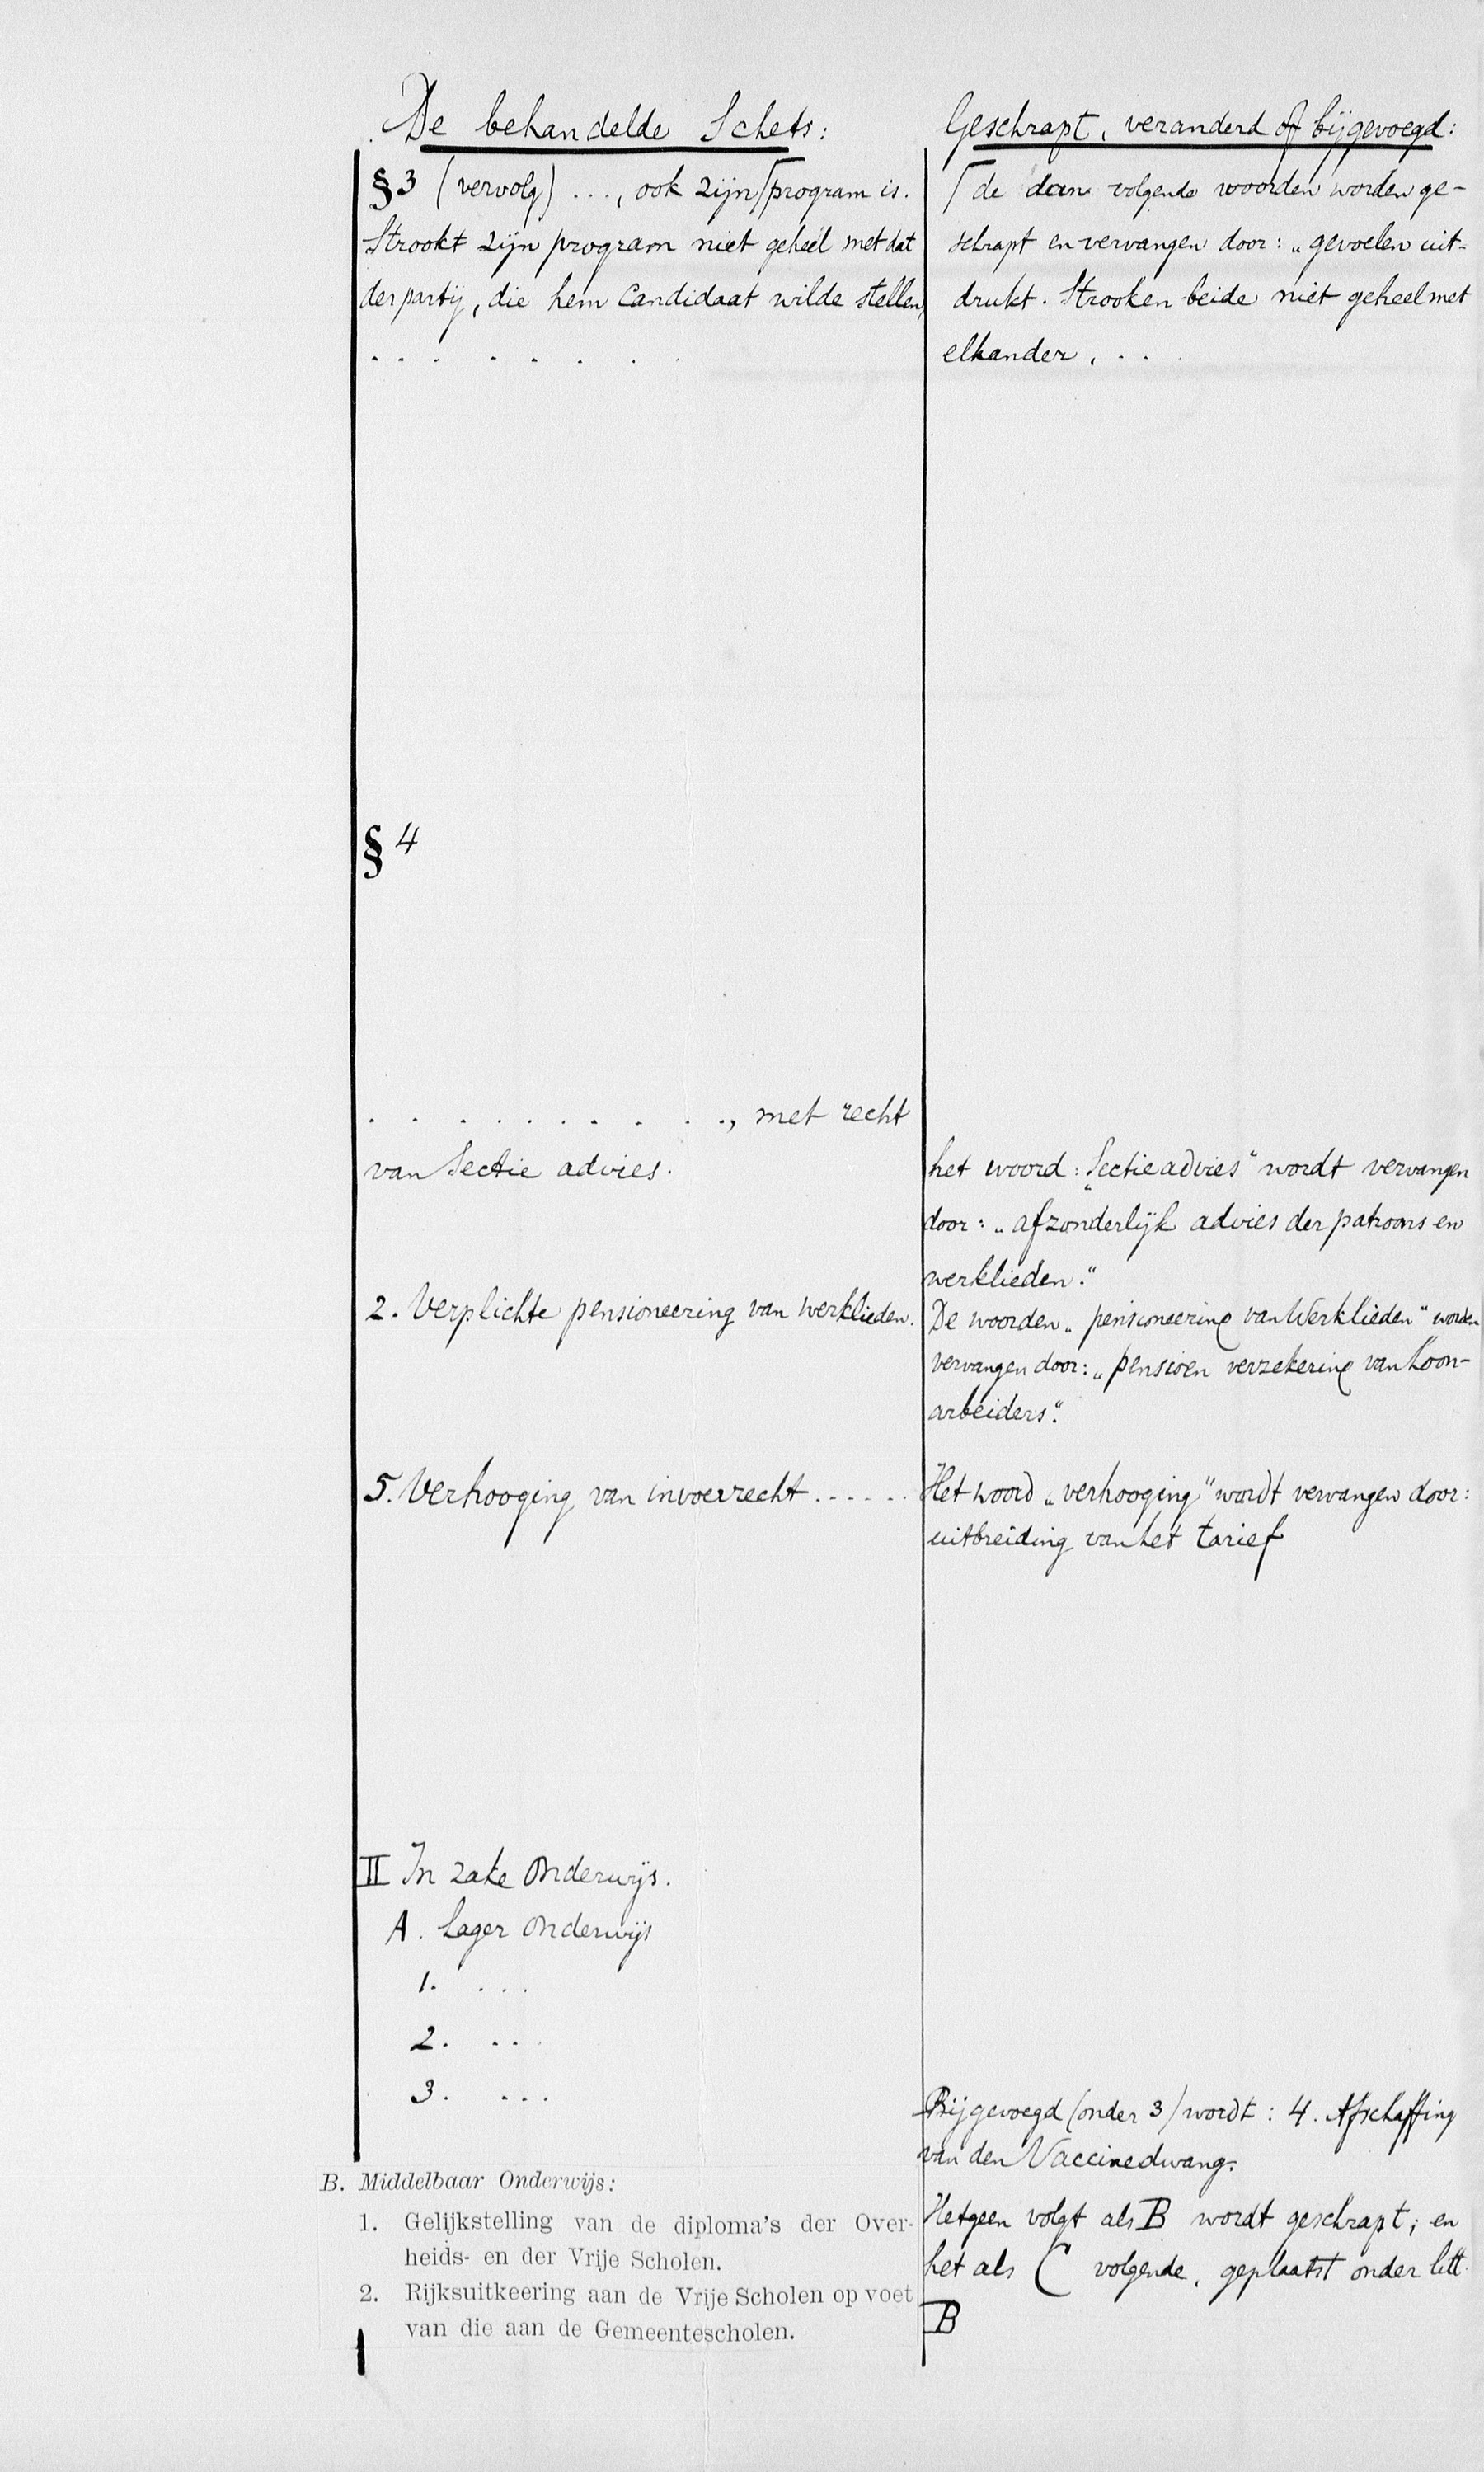 De behandelde Schets:
§3 (vervolg) ..., ook zijn ⌈program is.
Strookt zijn program niet geheel met dat
der partij, die hem Candidaat wilde stellen,
. . . . . . . .
§ 4
. . . . . . . . . . ., met recht
van Sectie advies.
2. Verplichte pensioneering van werklieden.
5. Verhooging van invoerrecht ......
II In zake Onderwijs.
A. Lager Onderwijs
1. ...
2. ...
3. ...
B. Middelbaar Onderwijs:
1. Gelijkstelling van de diploma's der Over-
heids- en der Vrije Scholen.
2. Rijksuitkeering aan de Vrije Scholen op voet
van die aan de Gemeentescholen.
Geschrapt, veranderd of bijgevoegd:
⌈ de dan volgende woorden worden ge-
schrapt en vervangen door: „gevoelen uit-
drukt. Strooken beide niet geheel met
elkander, ...
het woord: „Sectieadvies" wordt vervangen
door: „afzonderlijk advies der patroons en
werklieden."
De woorden „pensioneering van Werklieden" worden
vervangen door: „pensioen verzekering van Loon-
arbeiders".
Het woord „verhooging" wordt vervangen door:
uitbreiding van het tarief
Bijgevoegd (onder 3) wordt: 4. Afschaffing
van den Vaccinedwang.
Hetgeen volgt als B wordt geschrapt; en
het als C volgende, geplaatst onder litt.
B